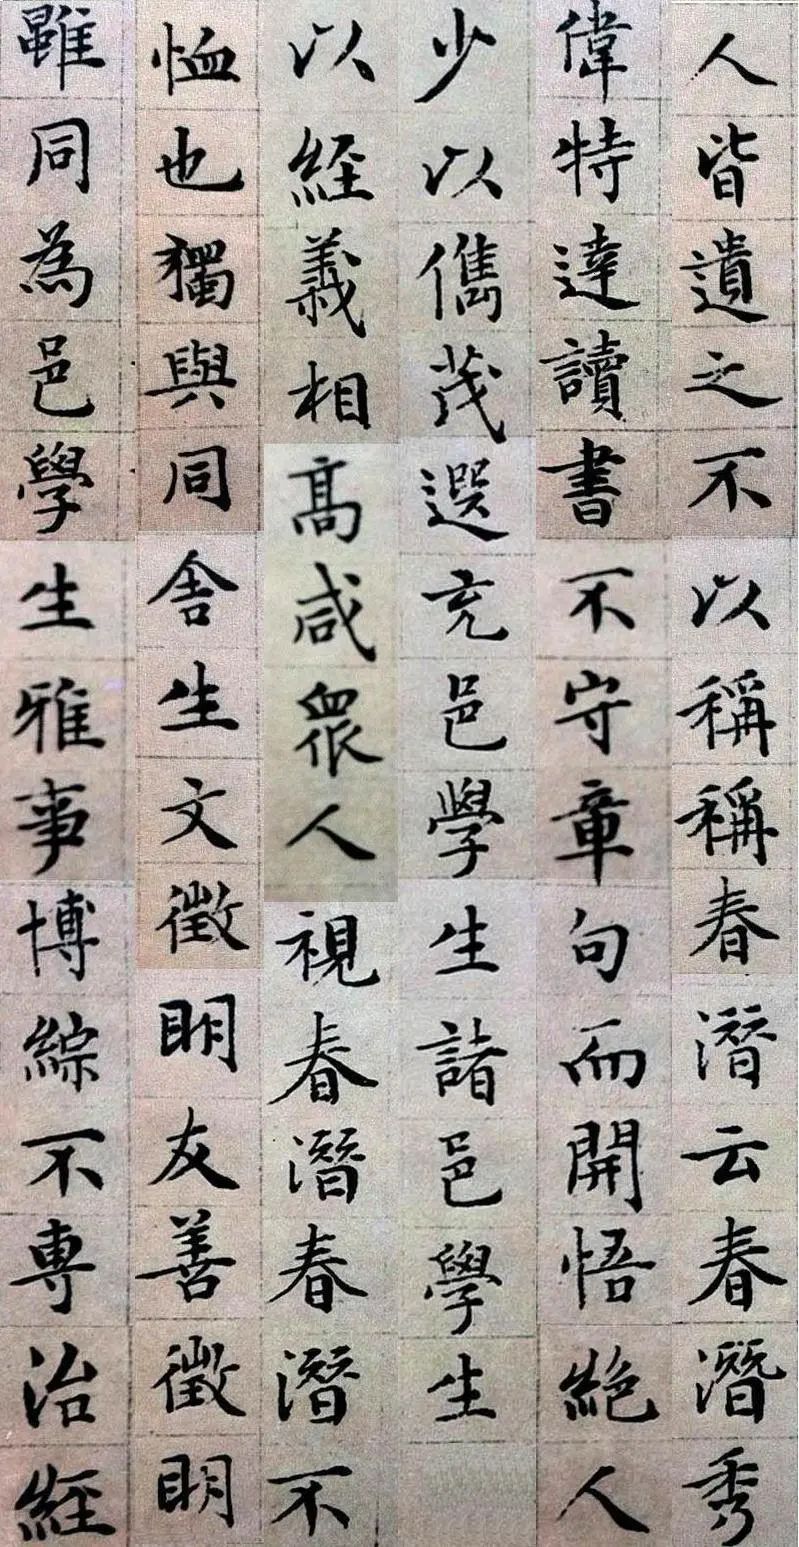 人皆遺之不以稱稱春潛云春潛秀
偉特達讀書不守章句而開悟絕人
少以儁茂選充邑學生諸邑學生
以經義相高咸眾人視春潛春潛不
恤也獨與同舍生文徵明友善徵明
雖同為邑學生雅事博綜不專治經